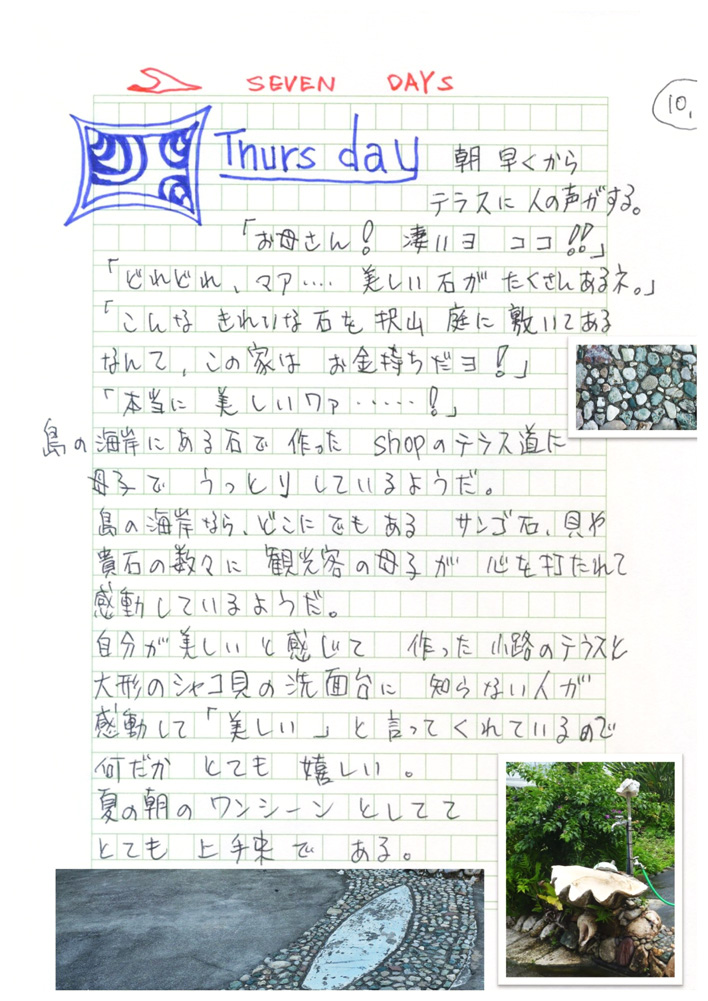 SEVEN DAYS
10,
Thursday 朝早くから
テラスに人の声がする。
「お母さん! 凄いヨ ココ!!」
「どれどれ、マア‥‥ 美しい石が たくさんあるネ。」
「こんな きれいな石を 沢山 庭に 敷いてある
なんて、この家は お金持ちだヨ!」
「本当に 美しいワァ‥‥‥!」
島の海岸にある石で 作った shopのテラス道に
母子で うっとりしているようだ。
島の海岸なら、どこにでもある サンゴ石、貝や
貴石の数々に 観光客の母子が 心を打たれて
感動しているようだ。
自分が美しいと感じて 作った 小路のテラスと
大形のシャコ貝の洗面台に 知らない人が
感動して「美しい」と言ってくれているので
何だか とても 嬉しい。
夏の朝の ワンシーン としてて
とても 上手来で ある。